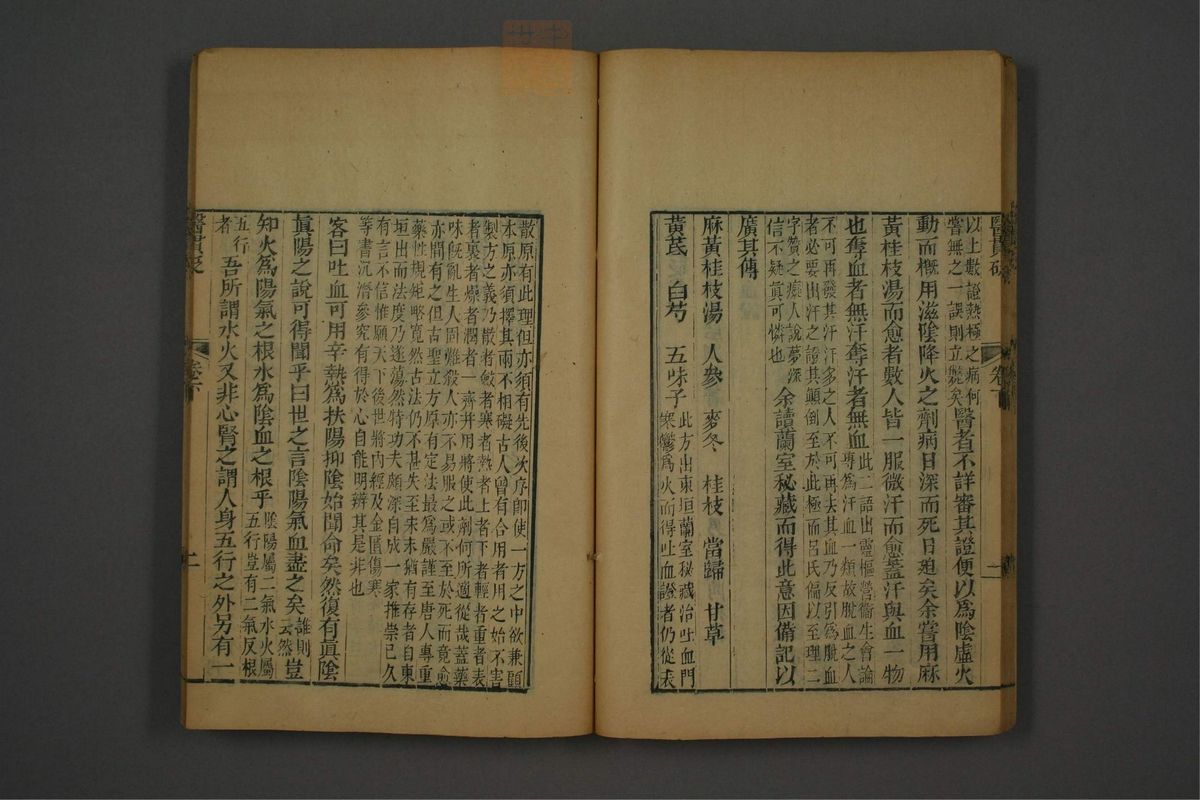 醫貫砭
卷下
以上數證熱極之病何
嘗無之一誤則立斃矣
醫者不詳審其證便以爲陰虛火
動而概用滋陰降火之劑病日深而死日廹矣余嘗用麻
黃桂枝湯而愈者數人皆一服微汗而愈蓋汗與血一物
也奪血者無汗奪汗者無血
此二語出靈樞營衛生會論
專爲汗血一類故脫血之人
不可再發其汗汗多之人不可再去其血乃反引爲脫血
者必要出汗之證其顛倒至於此極而呂氏偏以至理二
字贊之癡人說夢深
信不疑眞可憐也
余讀蘭室秘藏而得此意因備記以
廣其傳
麻黃桂枝湯 人參 麥冬 桂枝 當歸 甘草
黃芪 白芍 五味子
此方出東垣蘭室秘藏治吐血門
寒鬱爲火而得吐血證者仍從表
散原有此理但亦須有先後次序即使一方之中欲兼顧
本原亦須擇其兩不相礙古人曾有合用者用之始不害
製方之義乃散者斂者寒者熱者上者下者輕者重者表
者裏者燥者潤者一齊并用將使此劑何所適從哉蓋藥
味旣亂生人固難殺人亦不易服之或不至於死而竟愈
亦間有之但古聖立方原有定法最爲嚴謹至唐人專重
藥性規矩略寬然古法仍不甚失至宋末猶有存者自東
垣出而法度乃遂蕩然特功夫頗深自成一家推崇已久
有言不信惟願天下後世將內經及金匱傷寒
等書沉潛參究有得於心自能明辨其是非也
客曰吐血可用辛熱爲扶陽抑陰始聞命矣然復有眞陰
眞陽之說可得聞乎曰世之言陰陽氣血盡之矣
誰則
云然
豈
知火爲陽氣之根水爲陰血之根乎
陰陽屬二氣水火屬
五行豈有二氣反根
五行
者
吾所謂水火又非心腎之謂人身五行之外另有一
醫貫砭
卷下
二